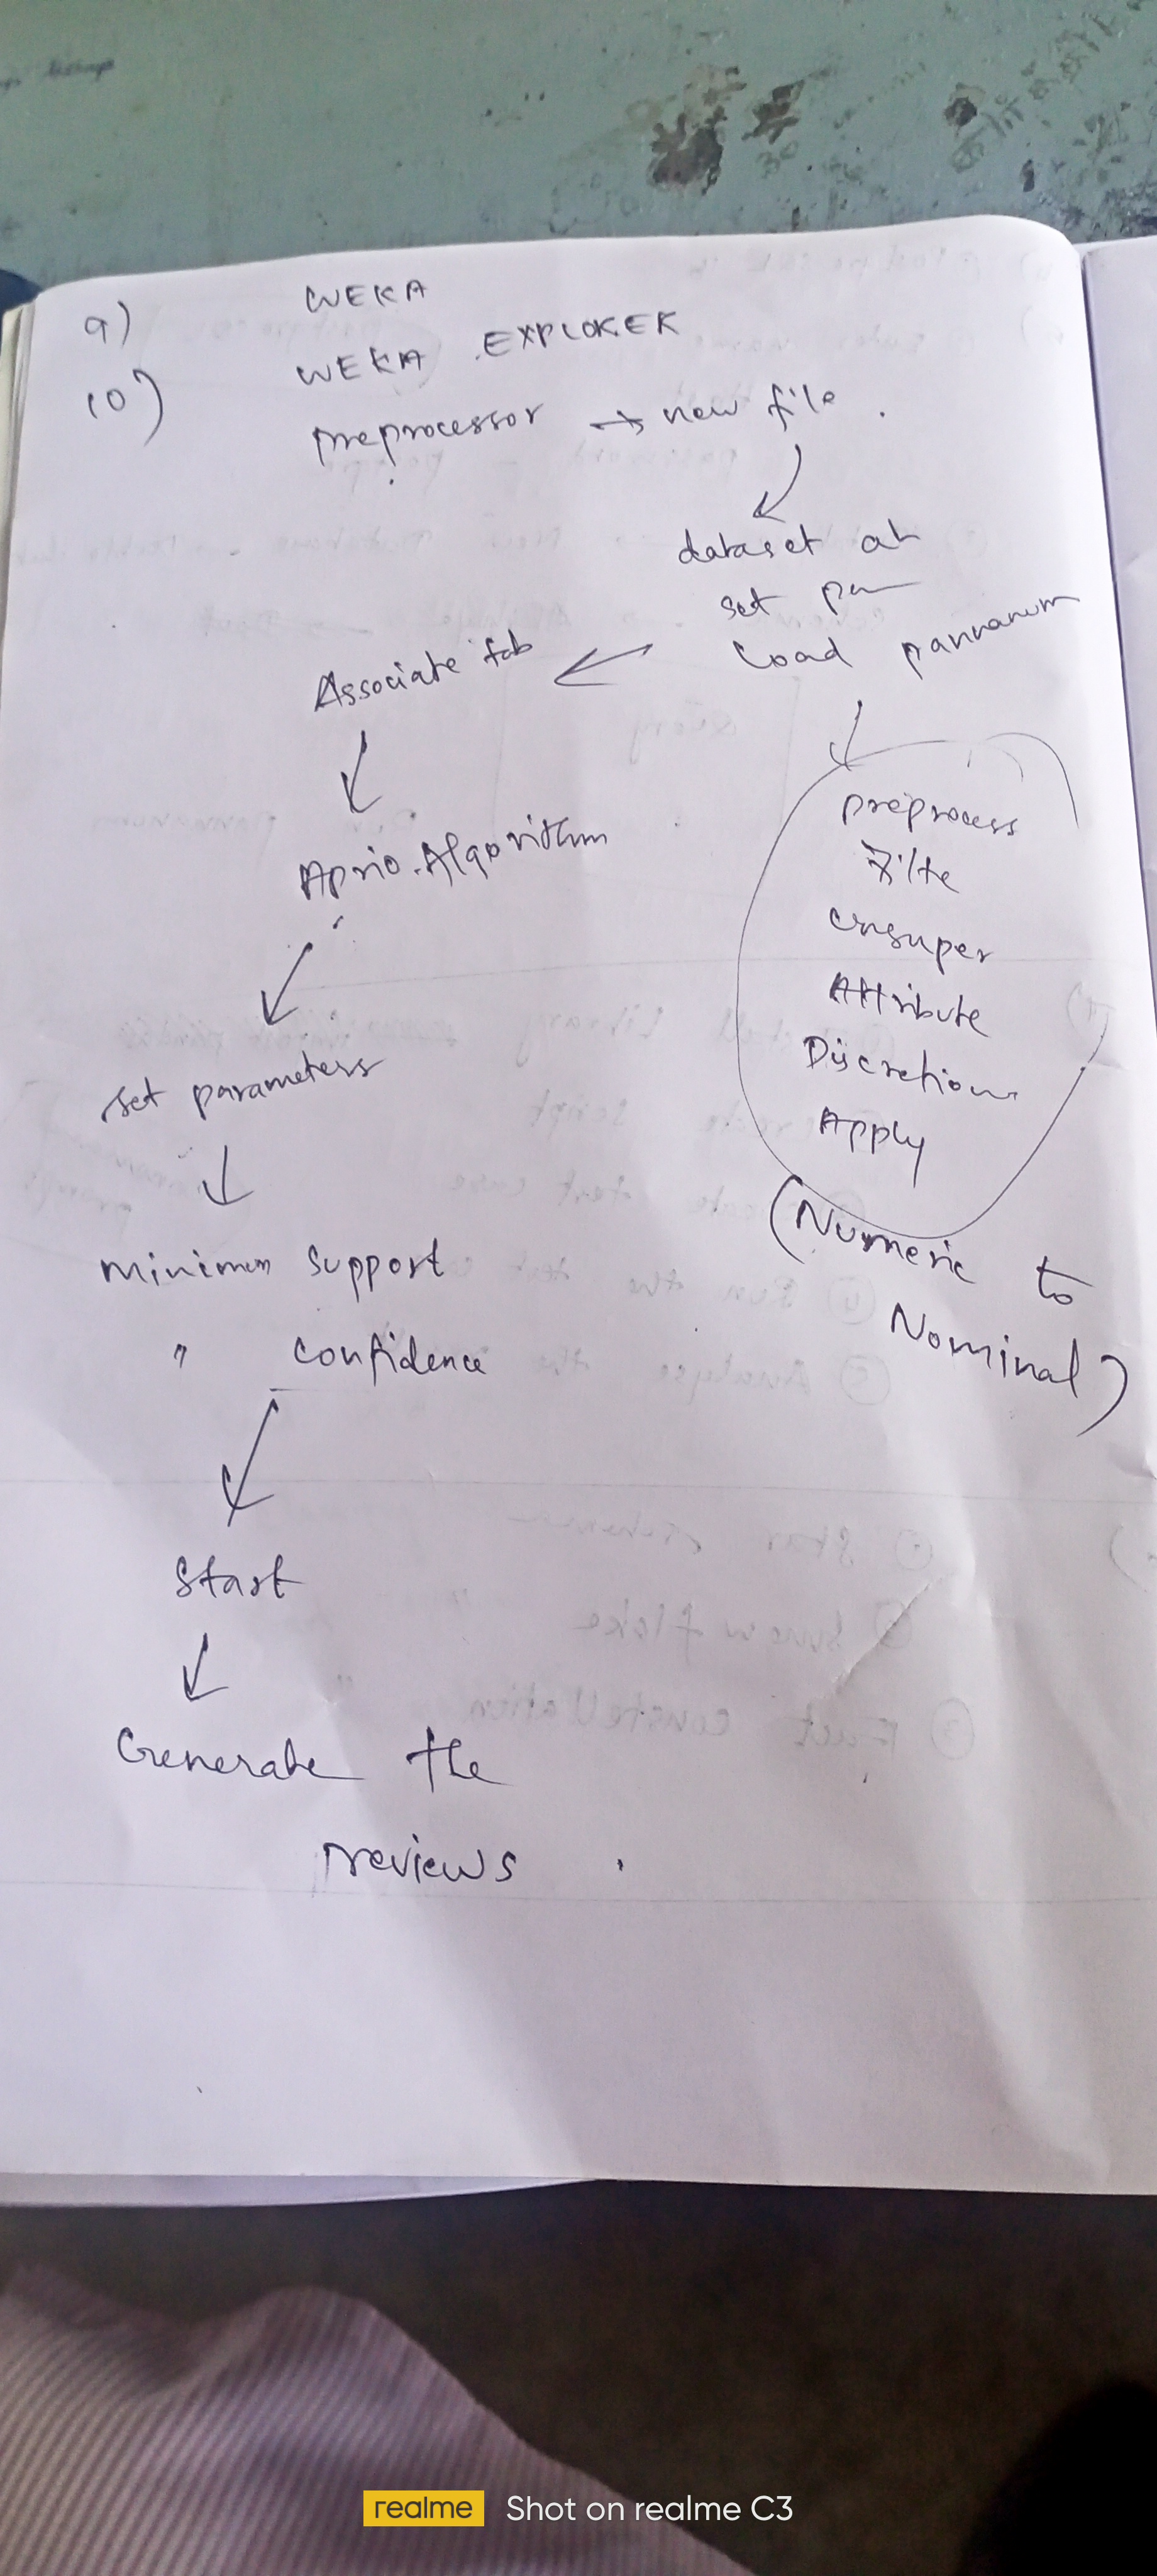 9) WEKA
10) WEKA EXPLORER
preprocessor → new file.
dataset ah
set pa
load pannanum
Associate tab
Aprio.Algorithm
set parameters
Minimum support
" confidence
Start
Generate the
reviews.
preprocess
Filte
unsuper
Attribute
Discretion
Apply
(Numeric to
Nominal)
realme Shot on realme C3